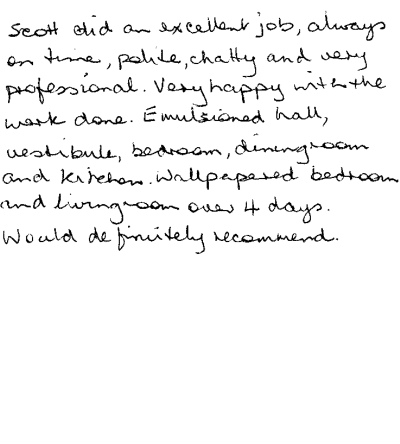 Scott did an excellent job, always
on time, polite, chatty and very
professional. Very happy with the
work done. Emulsioned hall,
vestibule, bedroom, diningroom
and kitchen. Wallpapered bedroom
and livingroom over 4 days.
Would definitely recommend.